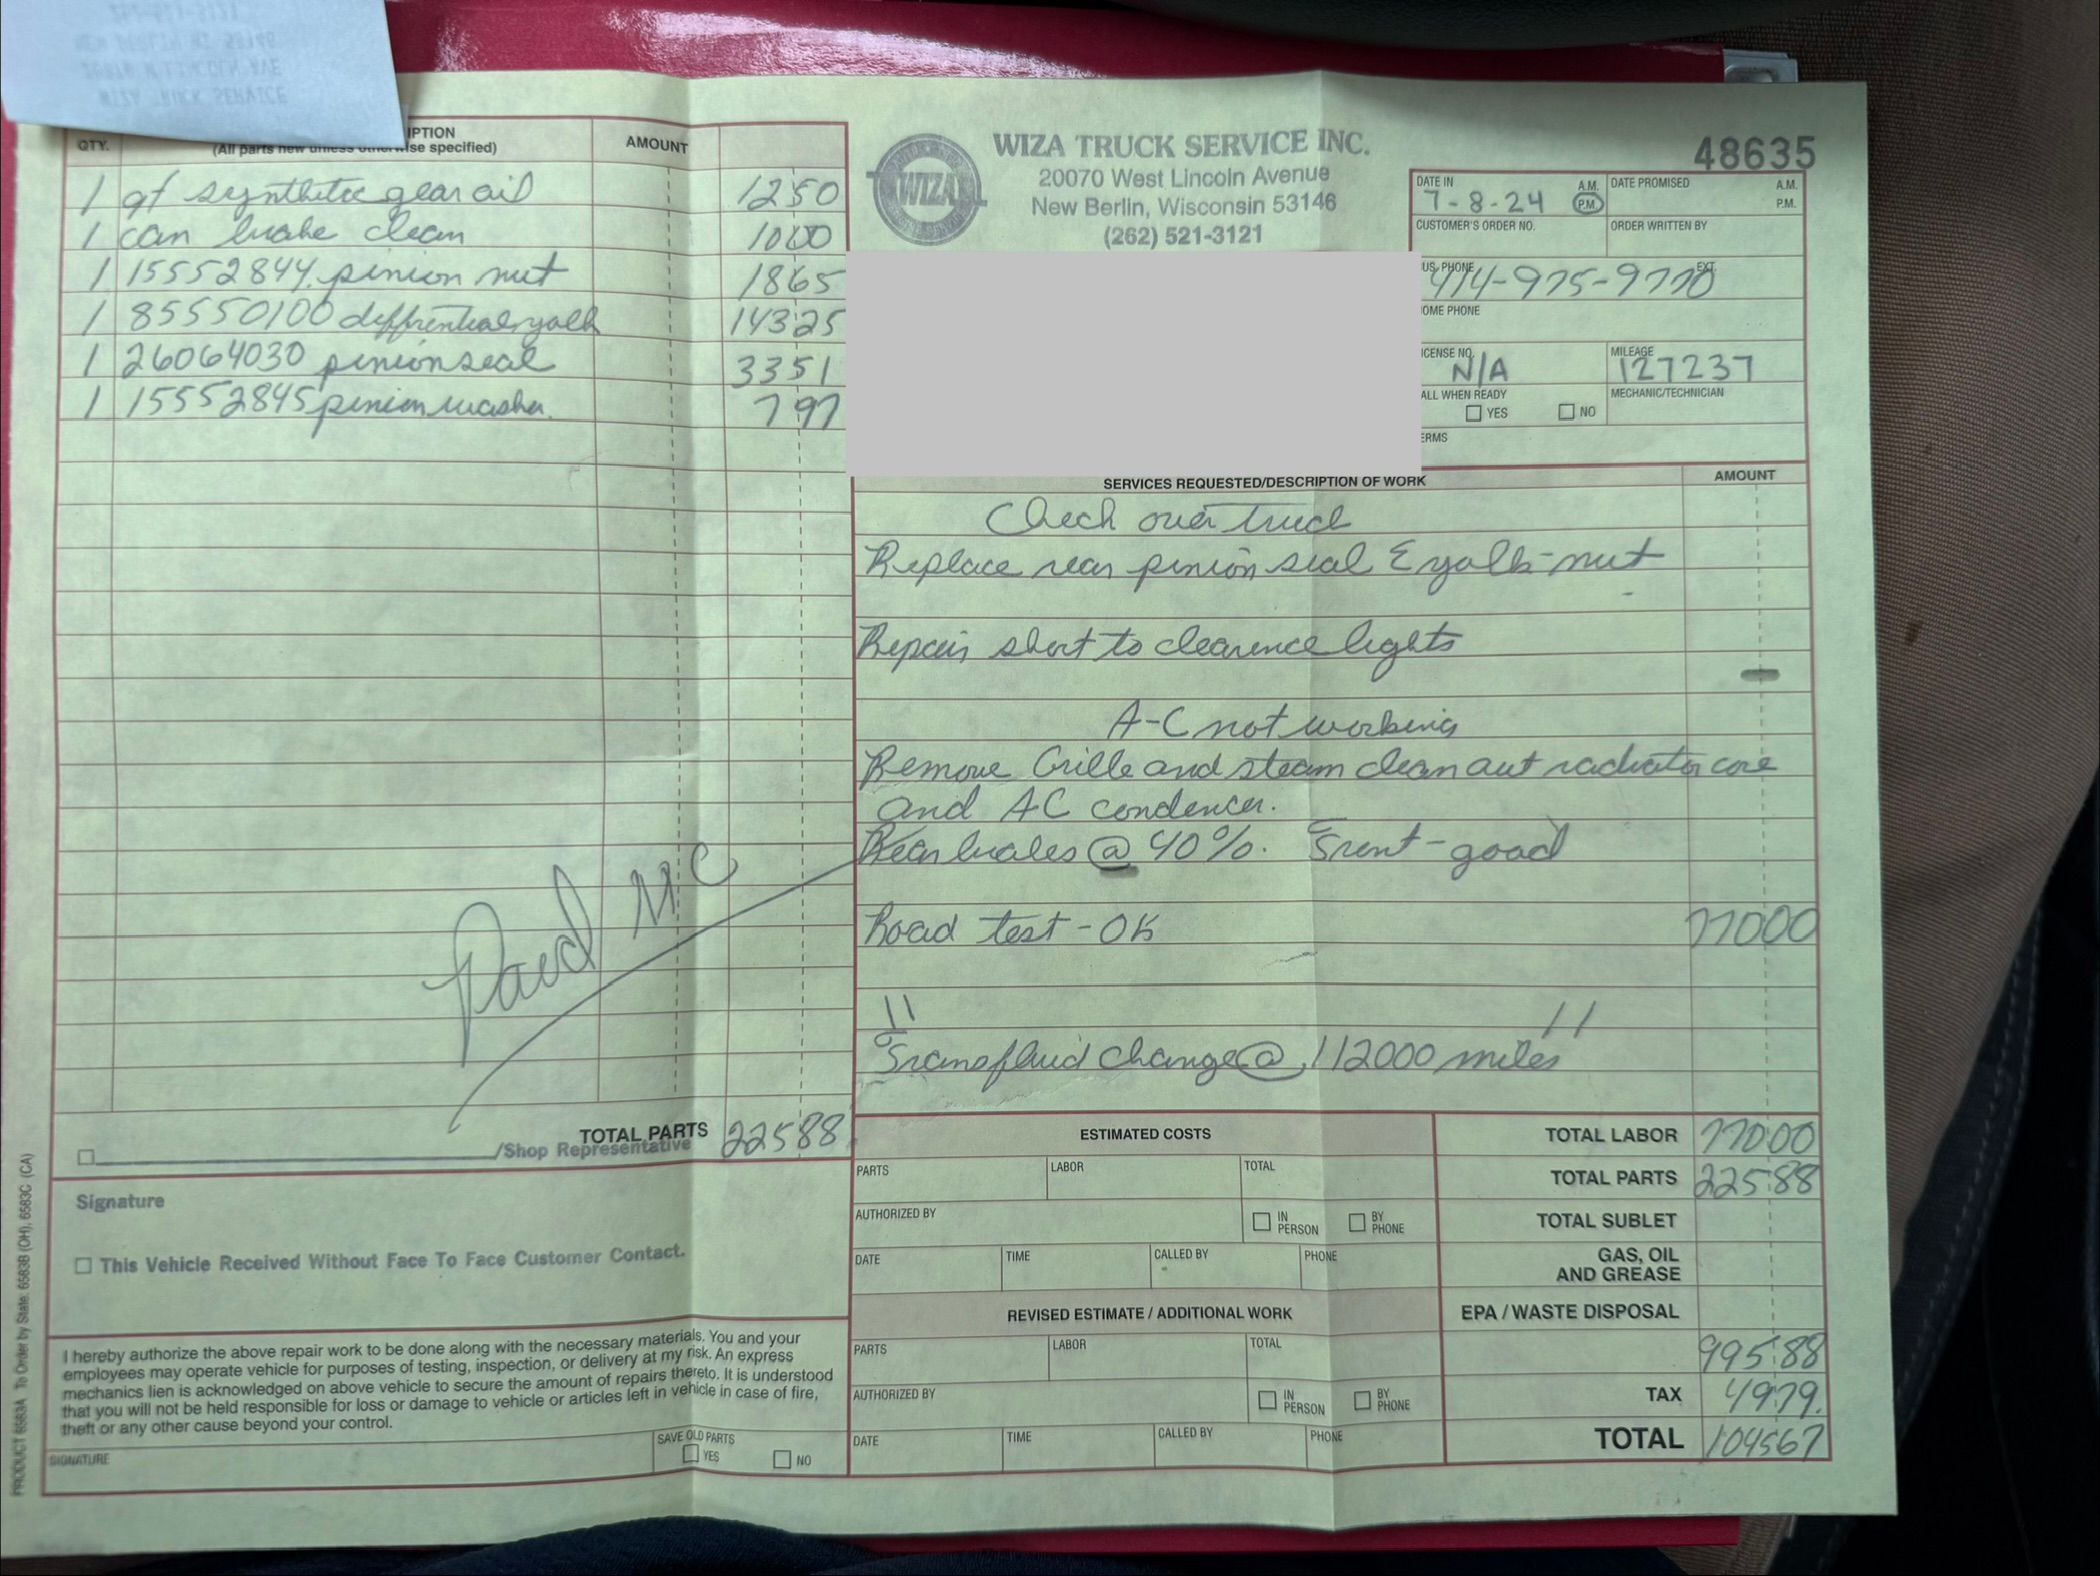 QTY.
(All parts new unless otherwise specified)
AMOUNT
1 qt synthetic gear oil 1250
1 can brake clean 1000
1 15552844 pinion nut 1865
1 85550100 diffrential yolk 14325
1 26064030 pinion seal 3351
1 15552845 pinion washer 797
Paid MC
TOTAL PARTS 22588
/Shop Representative
Signature
This Vehicle Received Without Face To Face Customer Contact.
I hereby authorize the above repair work to be done along with the necessary materials. You and your
employees may operate vehicle for purposes of testing, inspection, or delivery at my risk. An express
mechanics lien is acknowledged on above vehicle to secure the amount of repairs thereto. It is understood
that you will not be held responsible for loss or damage to vehicle or articles left in vehicle in case of fire,
theft or any other cause beyond your control.
SIGNATURE
SAVE OLD PARTS
YES NO
PRODUCT 6583A To Order by State: 6583B (OH), 6583C (CA)
WIZA
WIZA TRUCK SERVICE INC.
20070 West Lincoln Avenue
New Berlin, Wisconsin 53146
(262) 521-3121
48635
DATE IN 7-8-24 A.M. P.M.
DATE PROMISED A.M. P.M.
CUSTOMER'S ORDER NO.
ORDER WRITTEN BY
US. PHONE 414-975-9770 EXT.
OME PHONE
ICENSE NO. N/A
MILEAGE 127237
ALL WHEN READY
YES NO
MECHANIC/TECHNICIAN
ERMS
SERVICES REQUESTED/DESCRIPTION OF WORK
AMOUNT
Check over truck
Replace rear pinion seal & yolk-nut
Repair short to clearence lights
A-C not working
Remove Grille and steam clean out radiator core
and AC condencer.
Rear brakes @ 40%. Front-good
Road test-OK 77000
"Transfluid change @ 112000 miles"
ESTIMATED COSTS
PARTS LABOR TOTAL
AUTHORIZED BY IN PERSON BY PHONE
DATE TIME CALLED BY PHONE
REVISED ESTIMATE / ADDITIONAL WORK
PARTS LABOR TOTAL
AUTHORIZED BY IN PERSON BY PHONE
DATE TIME CALLED BY PHONE
TOTAL LABOR 77000
TOTAL PARTS 22588
TOTAL SUBLET
GAS, OIL
AND GREASE
EPA / WASTE DISPOSAL
99588
TAX 4979
TOTAL 104567